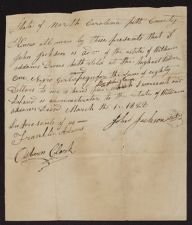 State of North Carolina Pitt County
Know all men by these presents that I
John Jackson as of the estate of William
Adams Decd hath sold at the highest bidder
One Negro Girl for the sum of eighty
Dollars to me in hand paid which I warrant and
Defend as administrator to the estate of William
Adams Decd March the 1. 1822
In presents of us
Franklin Adams
John Jackson
Calvin Clark